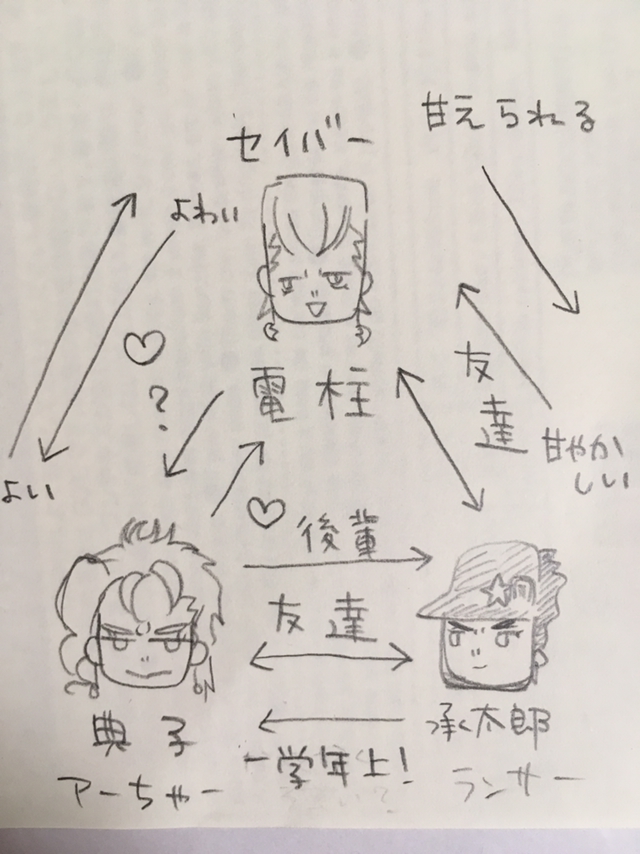 甘えられる
セイバー
よわい
?
友達
電柱
甘やか
しい
よい
後輩
友達
典子
承太郎
一学年上!
アーちゃー
ランサー